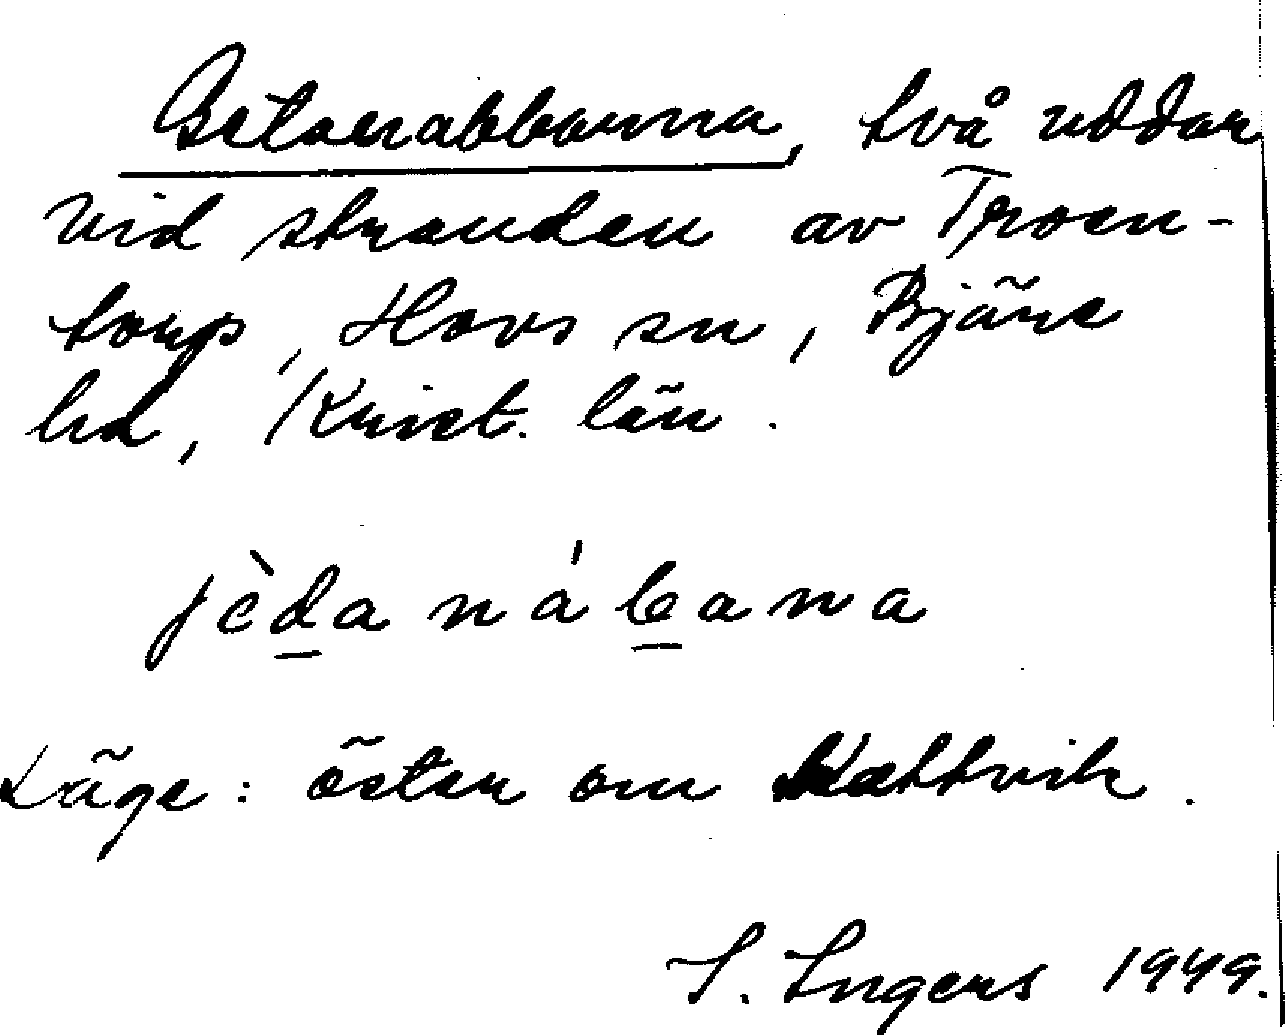 Getanabbarna, två uddar
vid stranden av Troen-
torp, Hovs sn, Bjäre
hd, Krist. län.
jèda nábana
Läge: öster om Kattvik.
S. Ingers 1949.